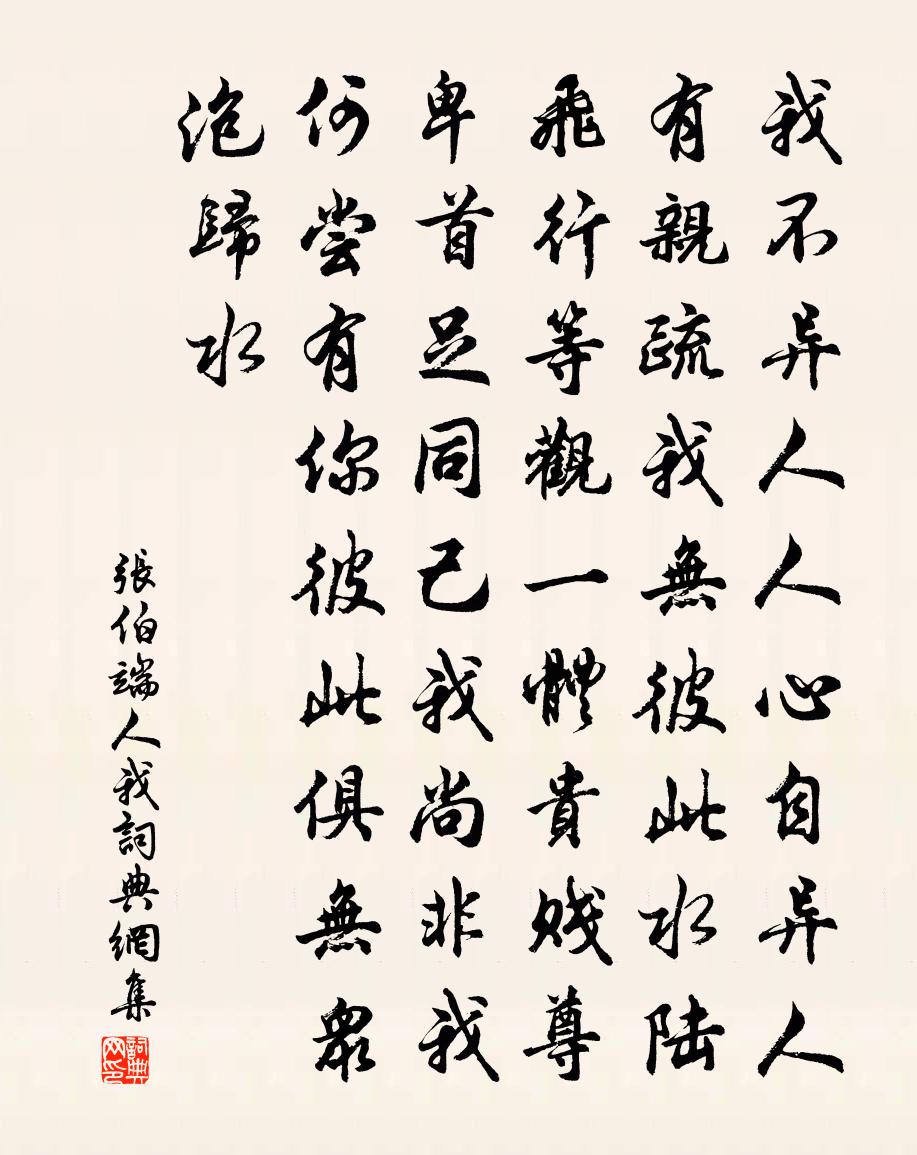 我不异人人心自异人
有親疏我無彼此水陆
飛行等觀一體貴贱尊
卑首足同己我尚非我
何尝有你彼此俱無眾
泡歸水
張伯端人我詞典網集
詞典网印